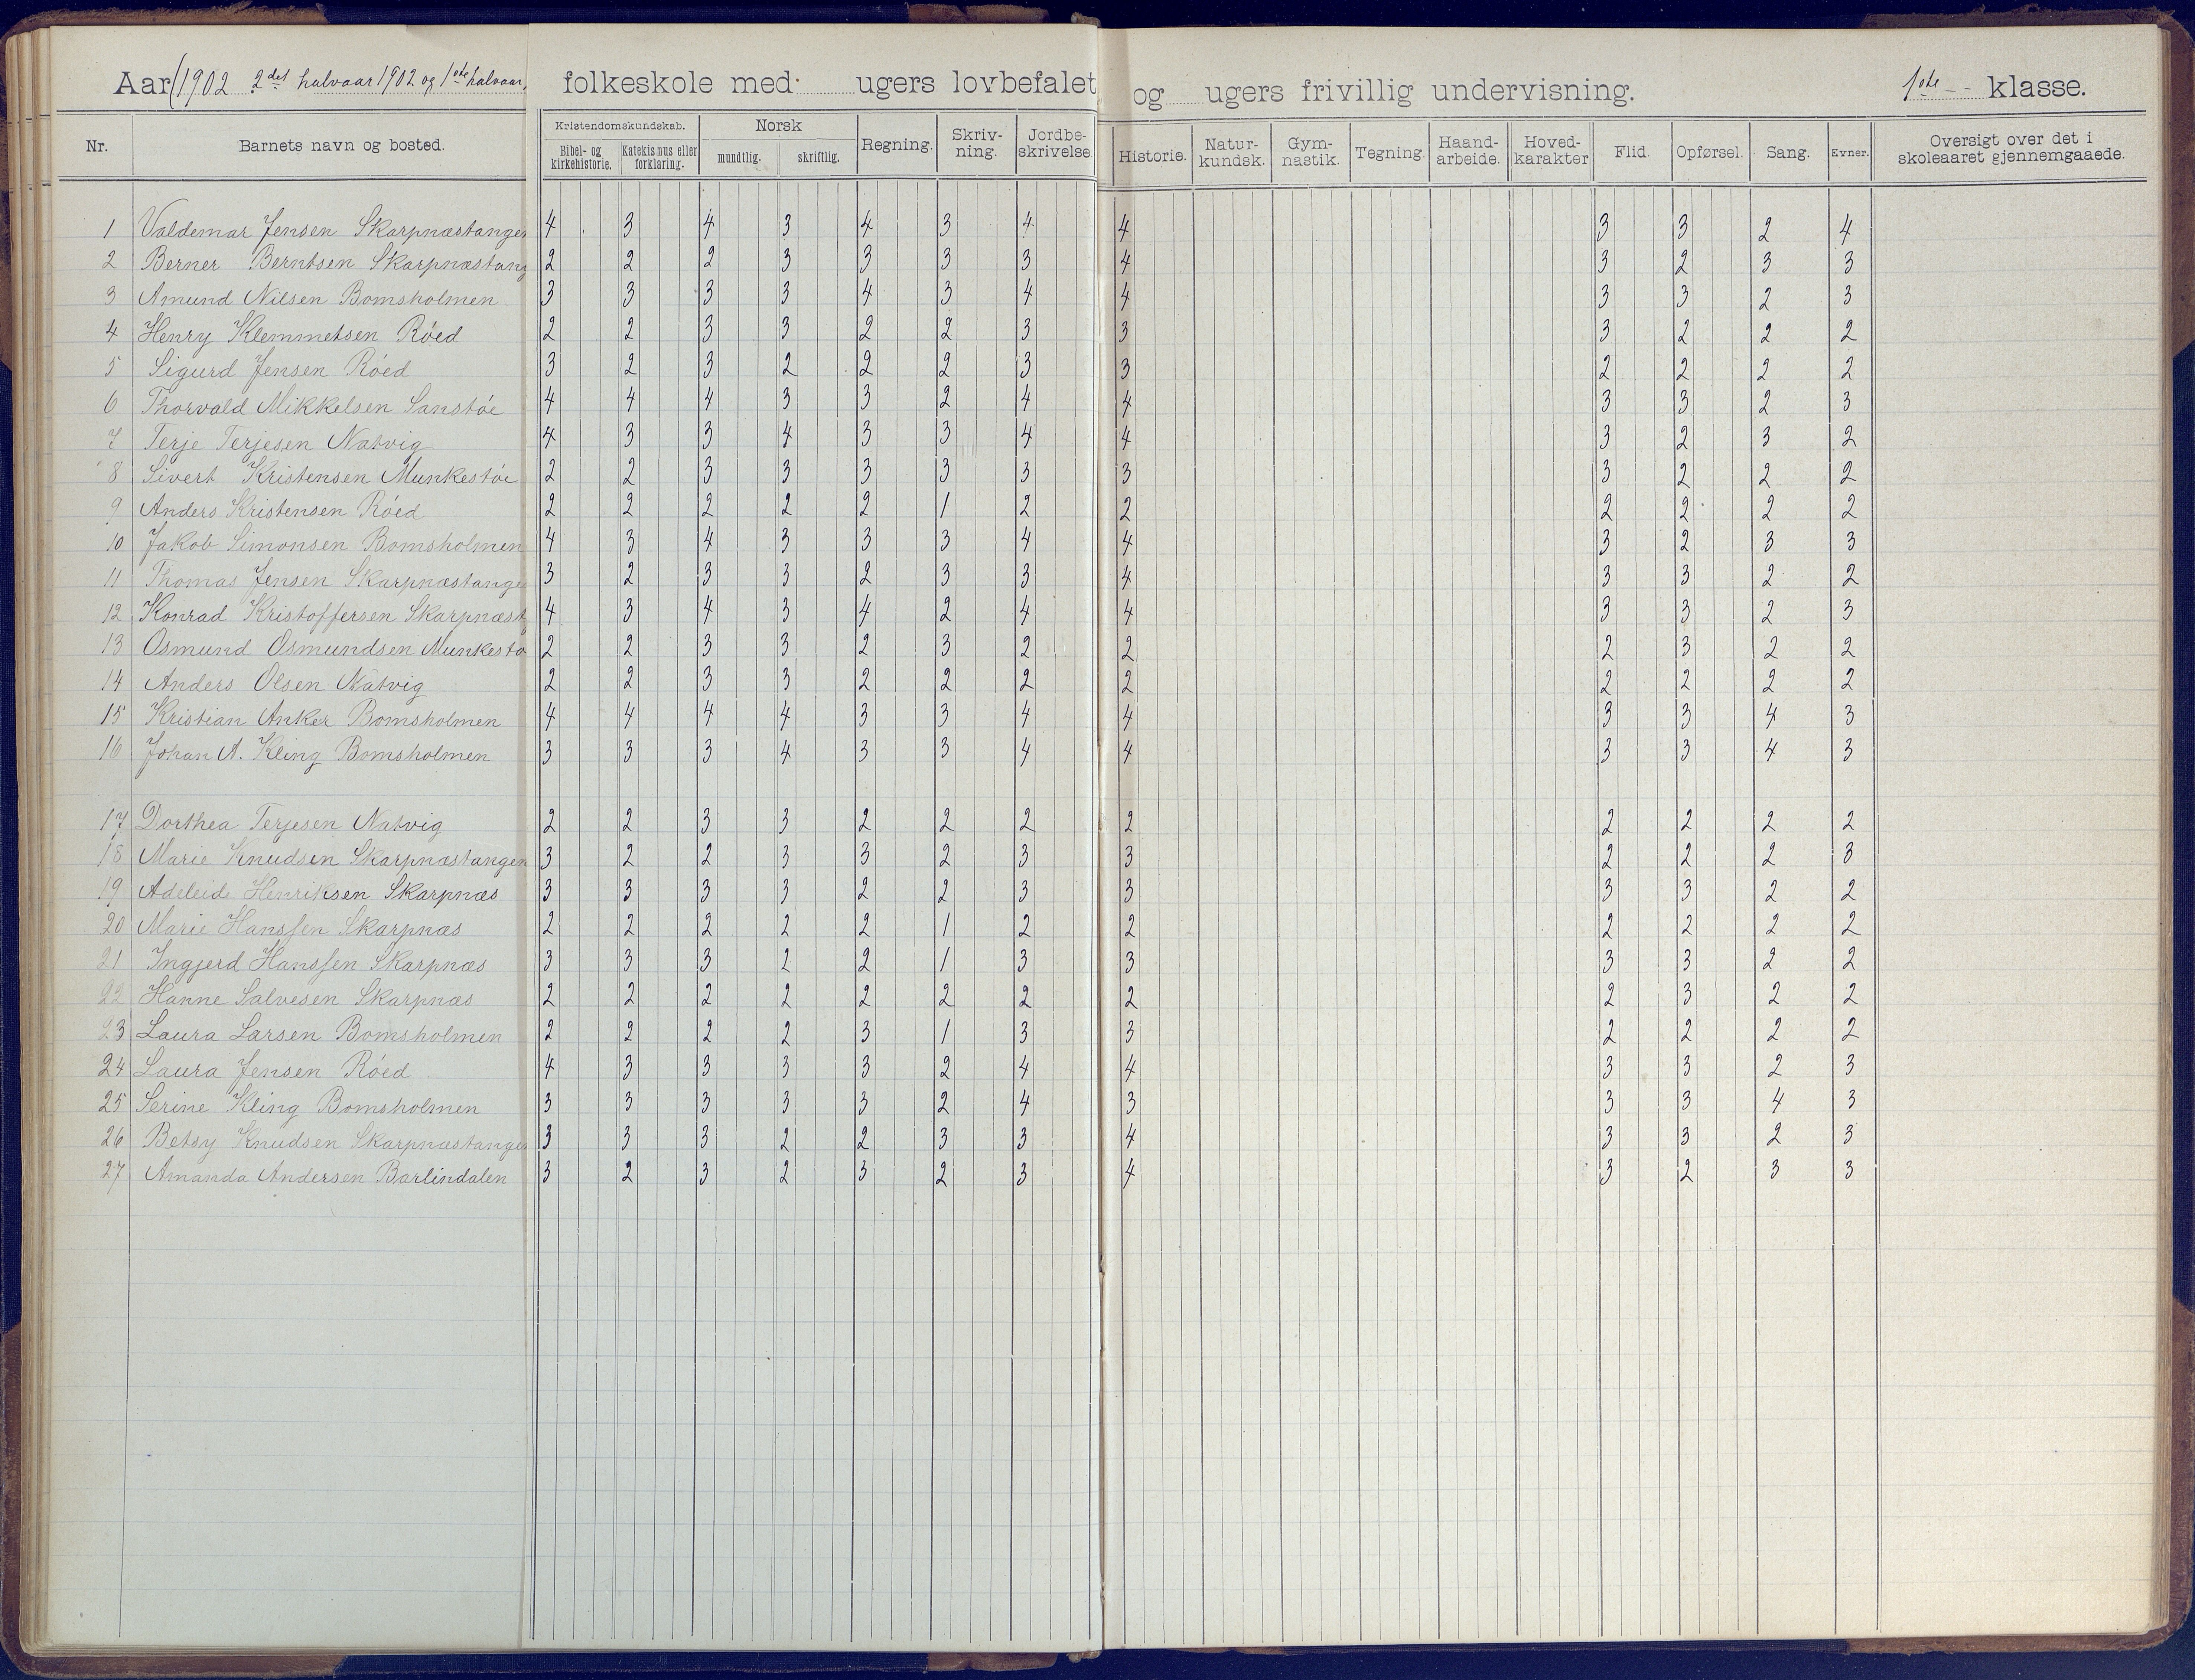 Aar (1902 2det halvaar 1902 og 1ste halvaar, folkeskole med ugers lovbefalet og ugers frivillig undervisning. 1ste klasse.
Nr. Barnets navn og bosted. Kristendomskundskab. Bibel- og kirkehistorie. Katekismus eller forklaring. Norsk mundtlig. skriftlig. Regning. Skriv-ning. Jordbe-skrivelse. Historie. Natur-kundsk. Gym-nastik. Tegning. Haand-arbeide. Hoved-karakter Flid. Opførsel. Sang. Evner. Oversigt over det i skoleaaret gjennemgaaede.
1 Valdemar Jensen Skarpnæstangen 4 3 4 3 4 3 4 4 3 3 2 4
2 Berner Berntsen Skarpnæstang 2 2 2 3 3 3 3 4 3 2 3 3
3 Amund Nilsen Bomsholmen 3 3 3 3 4 3 4 4 3 3 2 3
4 Henry Klemmetsen Röed 2 2 3 3 2 2 3 3 3 2 2 2
5 Sigurd Jensen Röed 3 2 3 2 2 2 3 3 2 2 2 2
6 Thorvald Mikkelsen Sanstöe 4 4 4 3 3 2 4 4 3 3 2 3
7 Terje Terjesen Natvig 4 3 3 4 3 3 4 4 3 2 3 2
8 Sivert Kristensen Munkestöe 2 2 3 3 3 3 3 3 3 2 2 2
9 Anders Kristensen Röed 2 2 2 2 2 1 2 2 2 2 2 2
10 Jakob Simonsen Bomsholmen 4 3 4 3 3 3 4 4 3 2 3 3
11 Thomas Jensen Skarpnæstange 3 2 3 3 2 3 3 4 3 3 2 2
12 Konrad Kristoffersen Skarpnæst 4 3 4 3 4 2 4 4 3 3 2 3
13 Osmund Osmundsen Munkestö 2 2 3 3 2 3 2 2 2 3 2 2
14 Anders Olsen Natvig 2 2 3 3 2 2 2 2 2 2 2 2
15 Kristian Anker Bomsholmen 4 4 4 4 3 3 4 4 3 3 4 3
16 Johan A. Kling Bomsholmen 3 3 3 4 3 3 4 4 3 3 4 3
17 Dorthea Terjesen Natvig 2 2 3 3 2 2 2 2 2 2 2 2
18 Marie Knudsen Skarpnæstangen 3 2 2 3 3 2 3 3 2 2 2 3
19 Adeleide Henriksen Skarpnæs 3 3 3 3 2 2 3 3 3 3 2 2
20 Marie Hanssen Skarpnæs 2 2 2 2 2 1 2 2 2 2 2 2
21 Ingjerd Hanssen Skarpnæs 3 3 3 2 2 1 3 3 3 3 2 2
22 Hanne Salvesen Skarpnæs 2 2 2 2 2 2 2 2 2 3 2 2
23 Laura Larsen Bomsholmen 2 2 2 2 3 1 3 3 2 2 2 2
24 Laura Jensen Röed 4 3 3 3 3 2 4 4 3 3 2 3
25 Serine Kling Bomsholmen 3 3 3 3 3 2 4 3 3 3 4 3
26 Betsy Knudsen Skarpnæstangen 3 3 3 2 2 3 3 4 3 3 2 3
27 Amanda Andersen Barlindalen 3 2 3 2 3 2 3 4 3 2 3 3